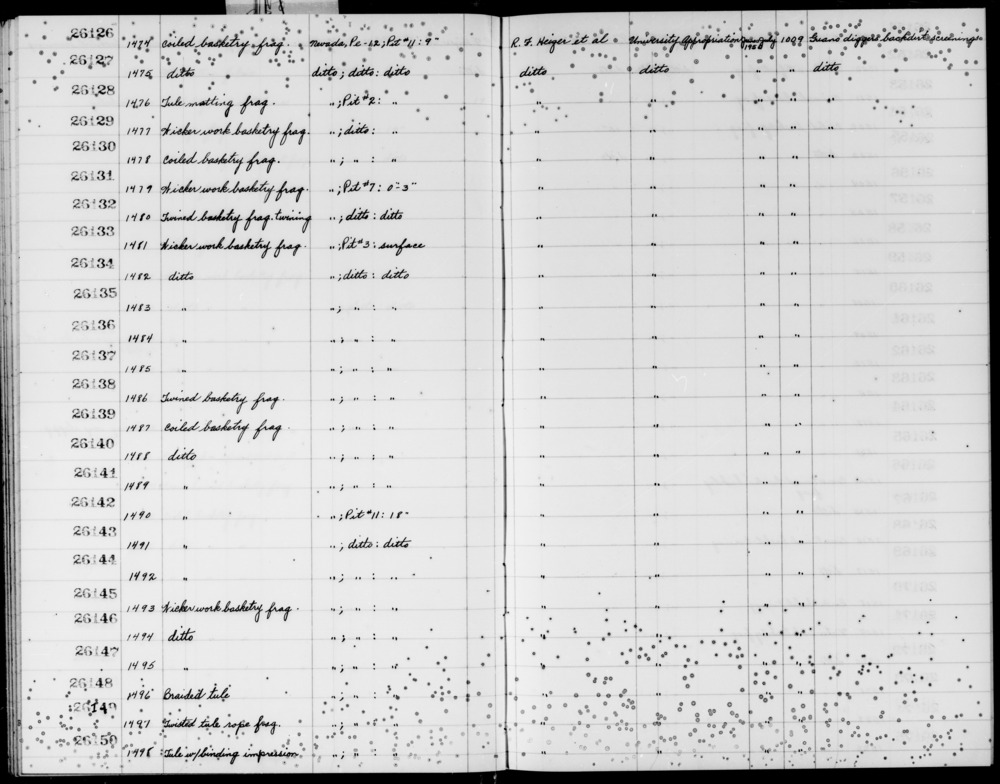 26126 1474 Coiled basketry frag. Nevada, Pe-12; Pit #11: 9" R. F. Heizer et al University Appropriation 1009 Guano diggers backdirt screenings
26127 1475 ditto ditto; ditto: ditto ditto ditto " " ditto
26128 1476 Tule matting frag. "; Pit #2: " " " " " "
26129 1477 Wicker work basketry frag. "; ditto: " " " " " "
26130 1478 Coiled basketry frag. "; " : " " " " " "
26131 1479 Wicker work basketry frag. "; Pit #7: 0"-3" " " " "
26132 1480 Twined basketry frag. twining "; ditto: ditto " " " "
26133 1481 Wicker work basketry frag. "; Pit #3: surface " " " "
26134 1482 ditto "; ditto: ditto " " " "
26135 1483 " "; " : " " " " "
26136 1484 " "; " : " " " " "
26137 1485 " "; " : " " " " "
26138 1486 Twined basketry frag. "; " : " " " " "
26139 1487 Coiled basketry frag. "; " : " " " " "
26140 1488 ditto "; " : " " " " "
26141 1489 " "; " : " " " " "
26142 1490 " "; Pit #11: 18" " " " "
26143 1491 " "; ditto: ditto " " " "
26144 1492 " "; " : " " " " "
26145 1493 Wicker work basketry frag. "; " : " " " " "
26146 1494 ditto "; " : " " " " "
26147 1495 " "; " : " " " " "
26148 1496 Braided tule "; " : " " " " "
26149 1497 Twisted tule rope frag. "; " : " " " " "
26150 1498 Tule w/binding impression "; " : " " " " "